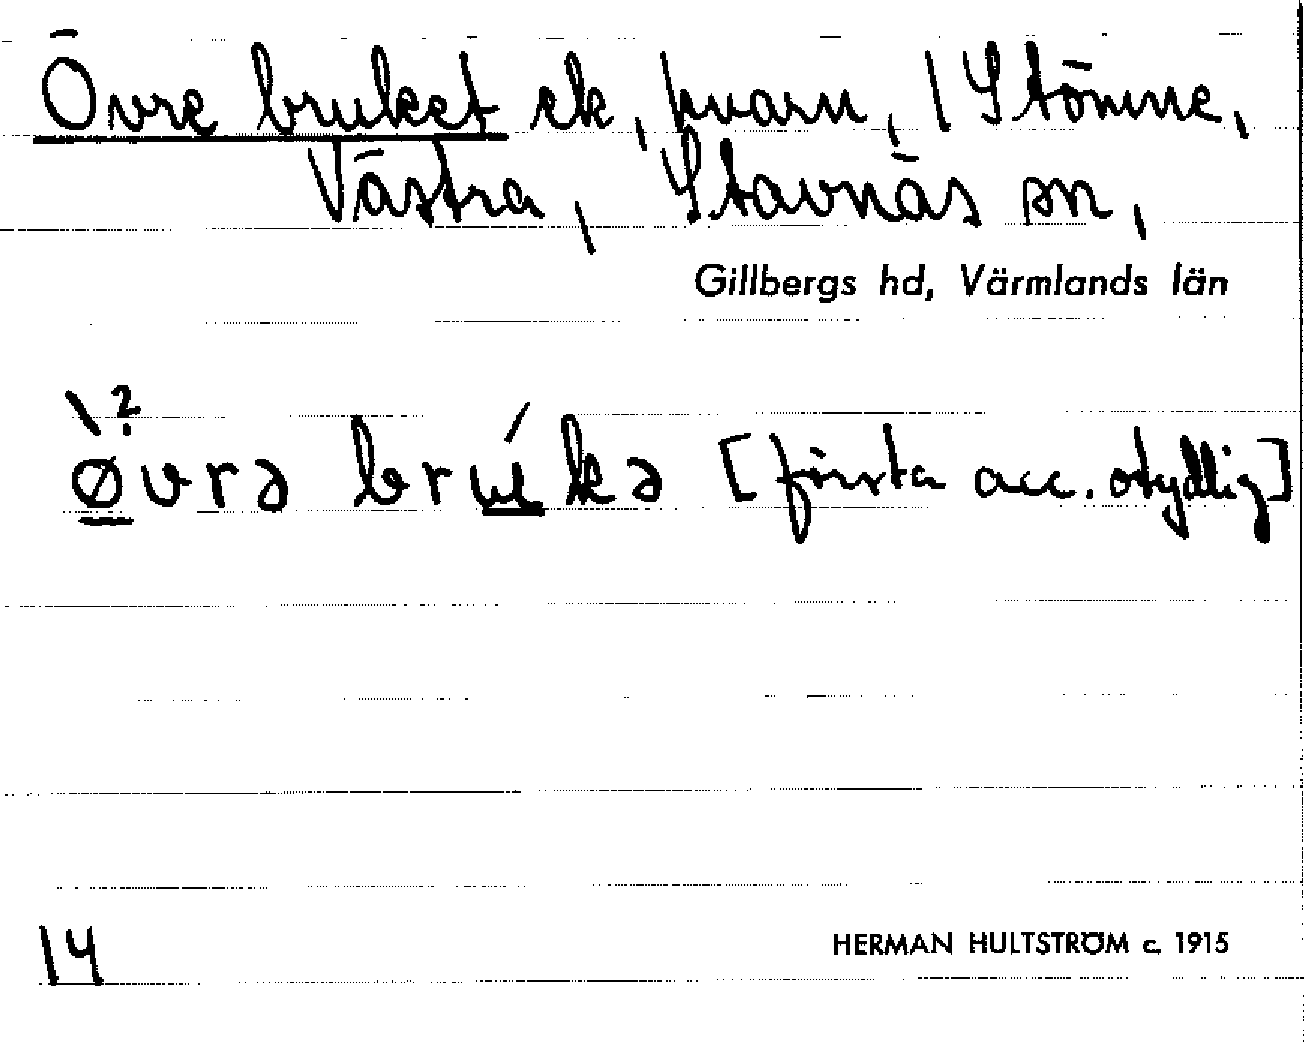 Övre bruket ek, kvarn, 1 Stömne,
Västra, Stavnäs sn,
Gillbergs hd, Värmlands län
\ ?
øvrə brúkə [första acc. otydlig]
14
HERMAN HULTSTRÖM c. 1915